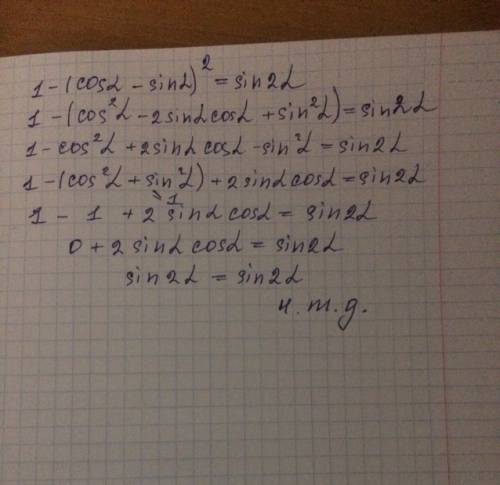 1-(cosα - sinα)² = sin2α
1-(cos²α - 2sinαcosα + sin²α) = sin2α
1-cos²α + 2sinαcosα - sin²α = sin2α
1-(cos²α + sin²α) + 2sinαcosα = sin2α
1
1 - 1 + 2 sinα cosα = sin2α
0 + 2 sinα cosα = sin2α
sin2α = sin2α
ч.т.д.